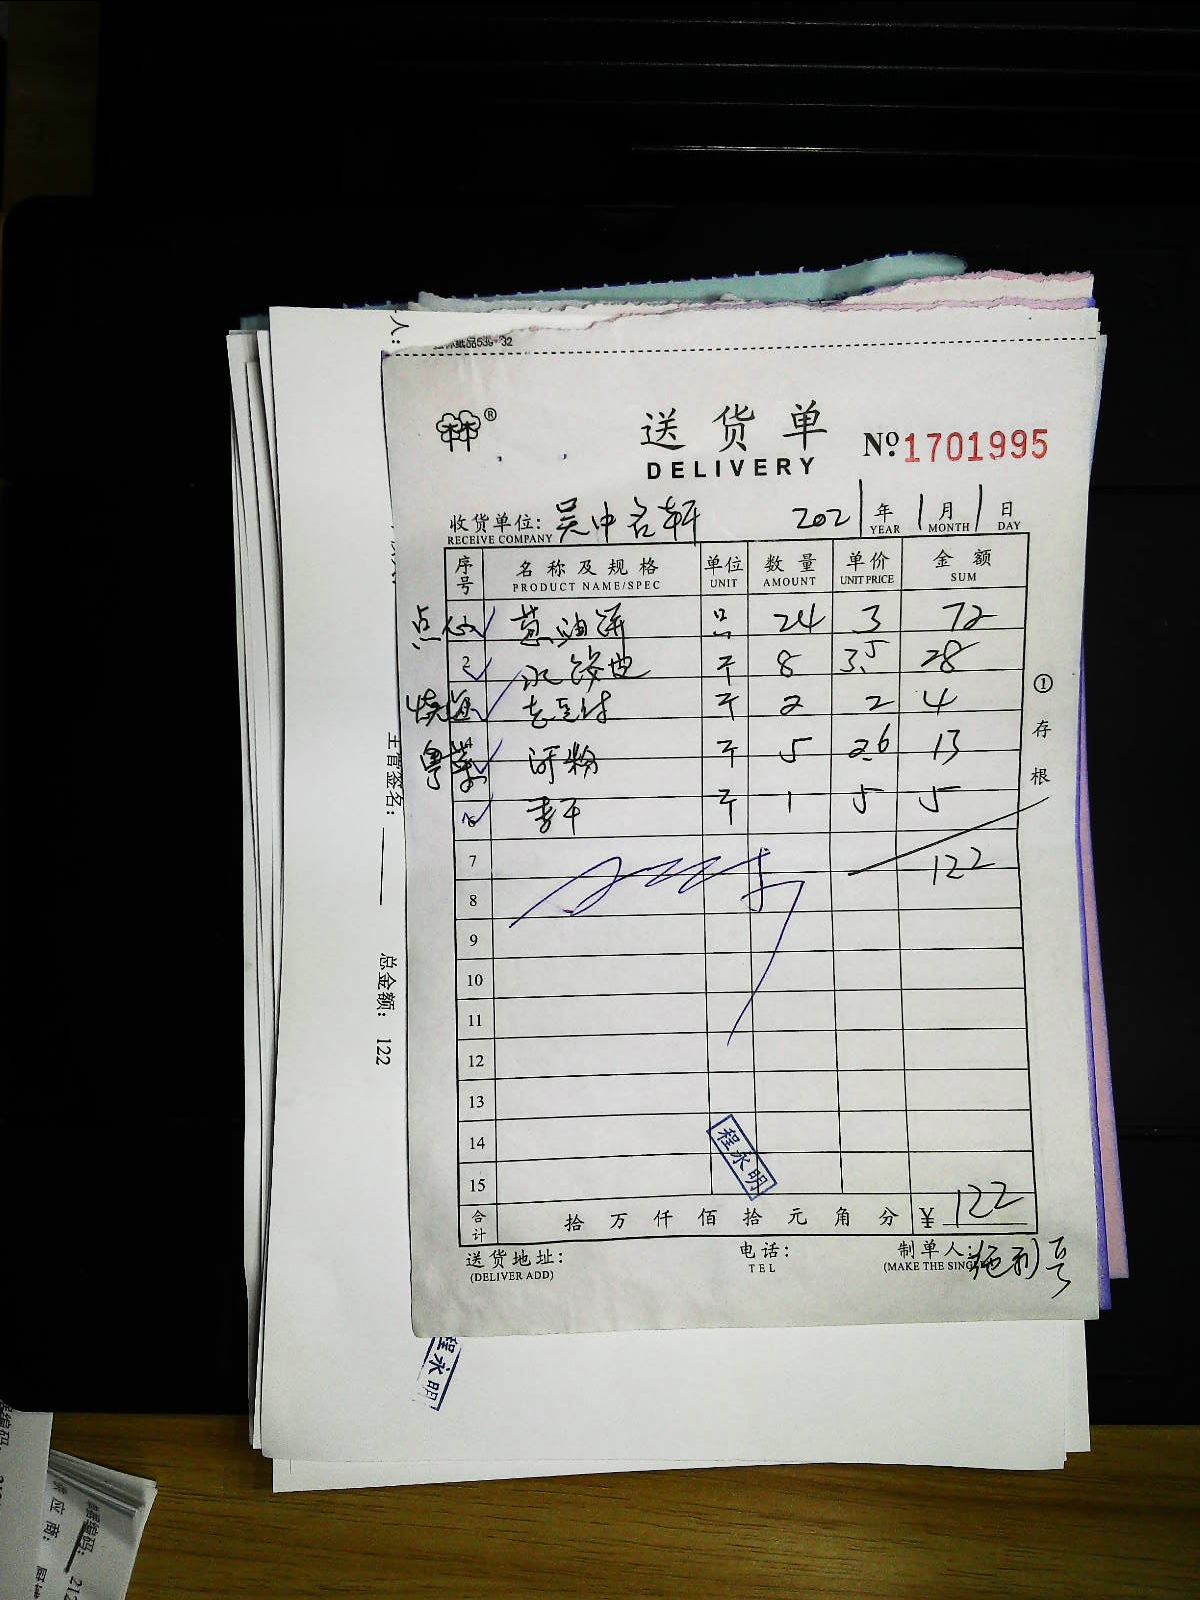 人:
539-32
®
送货单
DELIVERY
№1701995
收货单位: 吴中名轩 2021年1月1日
RECEIVE COMPANY YEAR MONTH DAY
序号 名称及规格 单位 数量 单价 金额
PRODUCT NAME/SPEC UNIT AMOUNT UNIT PRICE SUM
点心 葱油饼 只 24 3 72
2 水饺皮 斤 8 3.5 28
烧 斤 2 2 4
粤菜 河粉 斤 5 2.6 13
6 香干 斤 1 5 5
7 122
8
9
10
11
12
13
14
15
程永明
合计 拾万仟佰拾元角分 ¥ 122
送货地址: 电话: 制单人:
(DELIVER ADD) TEL (MAKE THE SINGLE
①存根
主管签名:
总金额: 122
程永明
应商:
编码: 212